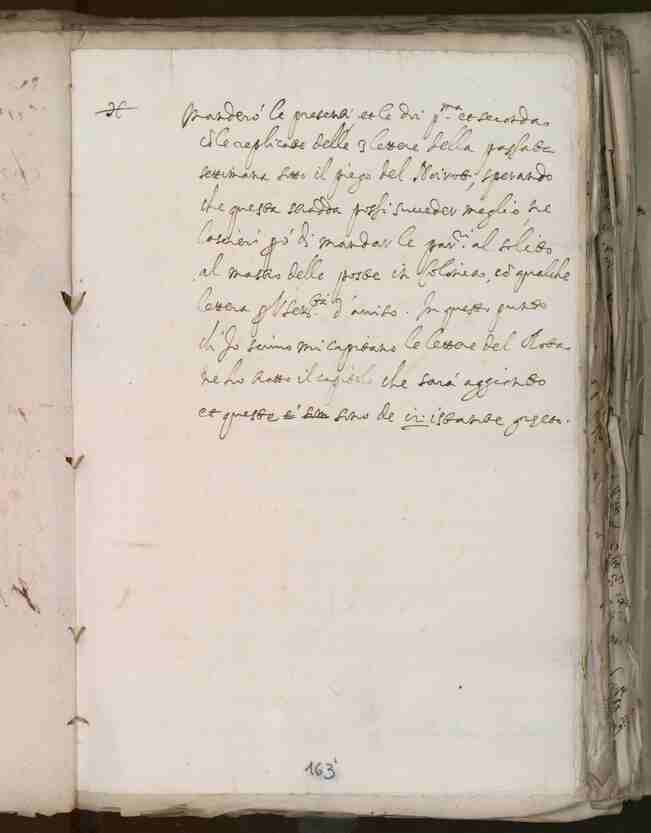 Manderó le presenti et le dri p.ma et seconda
cõ le replicate delle 9 lettere della passata
settimana sotto il piego del, sperando
che questa stradda possi succeder meglio ne
lascierí però di mandar le par.ti al solito
al mastro delle poste in Colonia, cõ qualche
lettera d'aviso. In questo punto
ch'Jo scrivo mi capitano le lettere del Rotta
ne ho tratto il capitolo che sará aggionto
et queste sino de istante
163